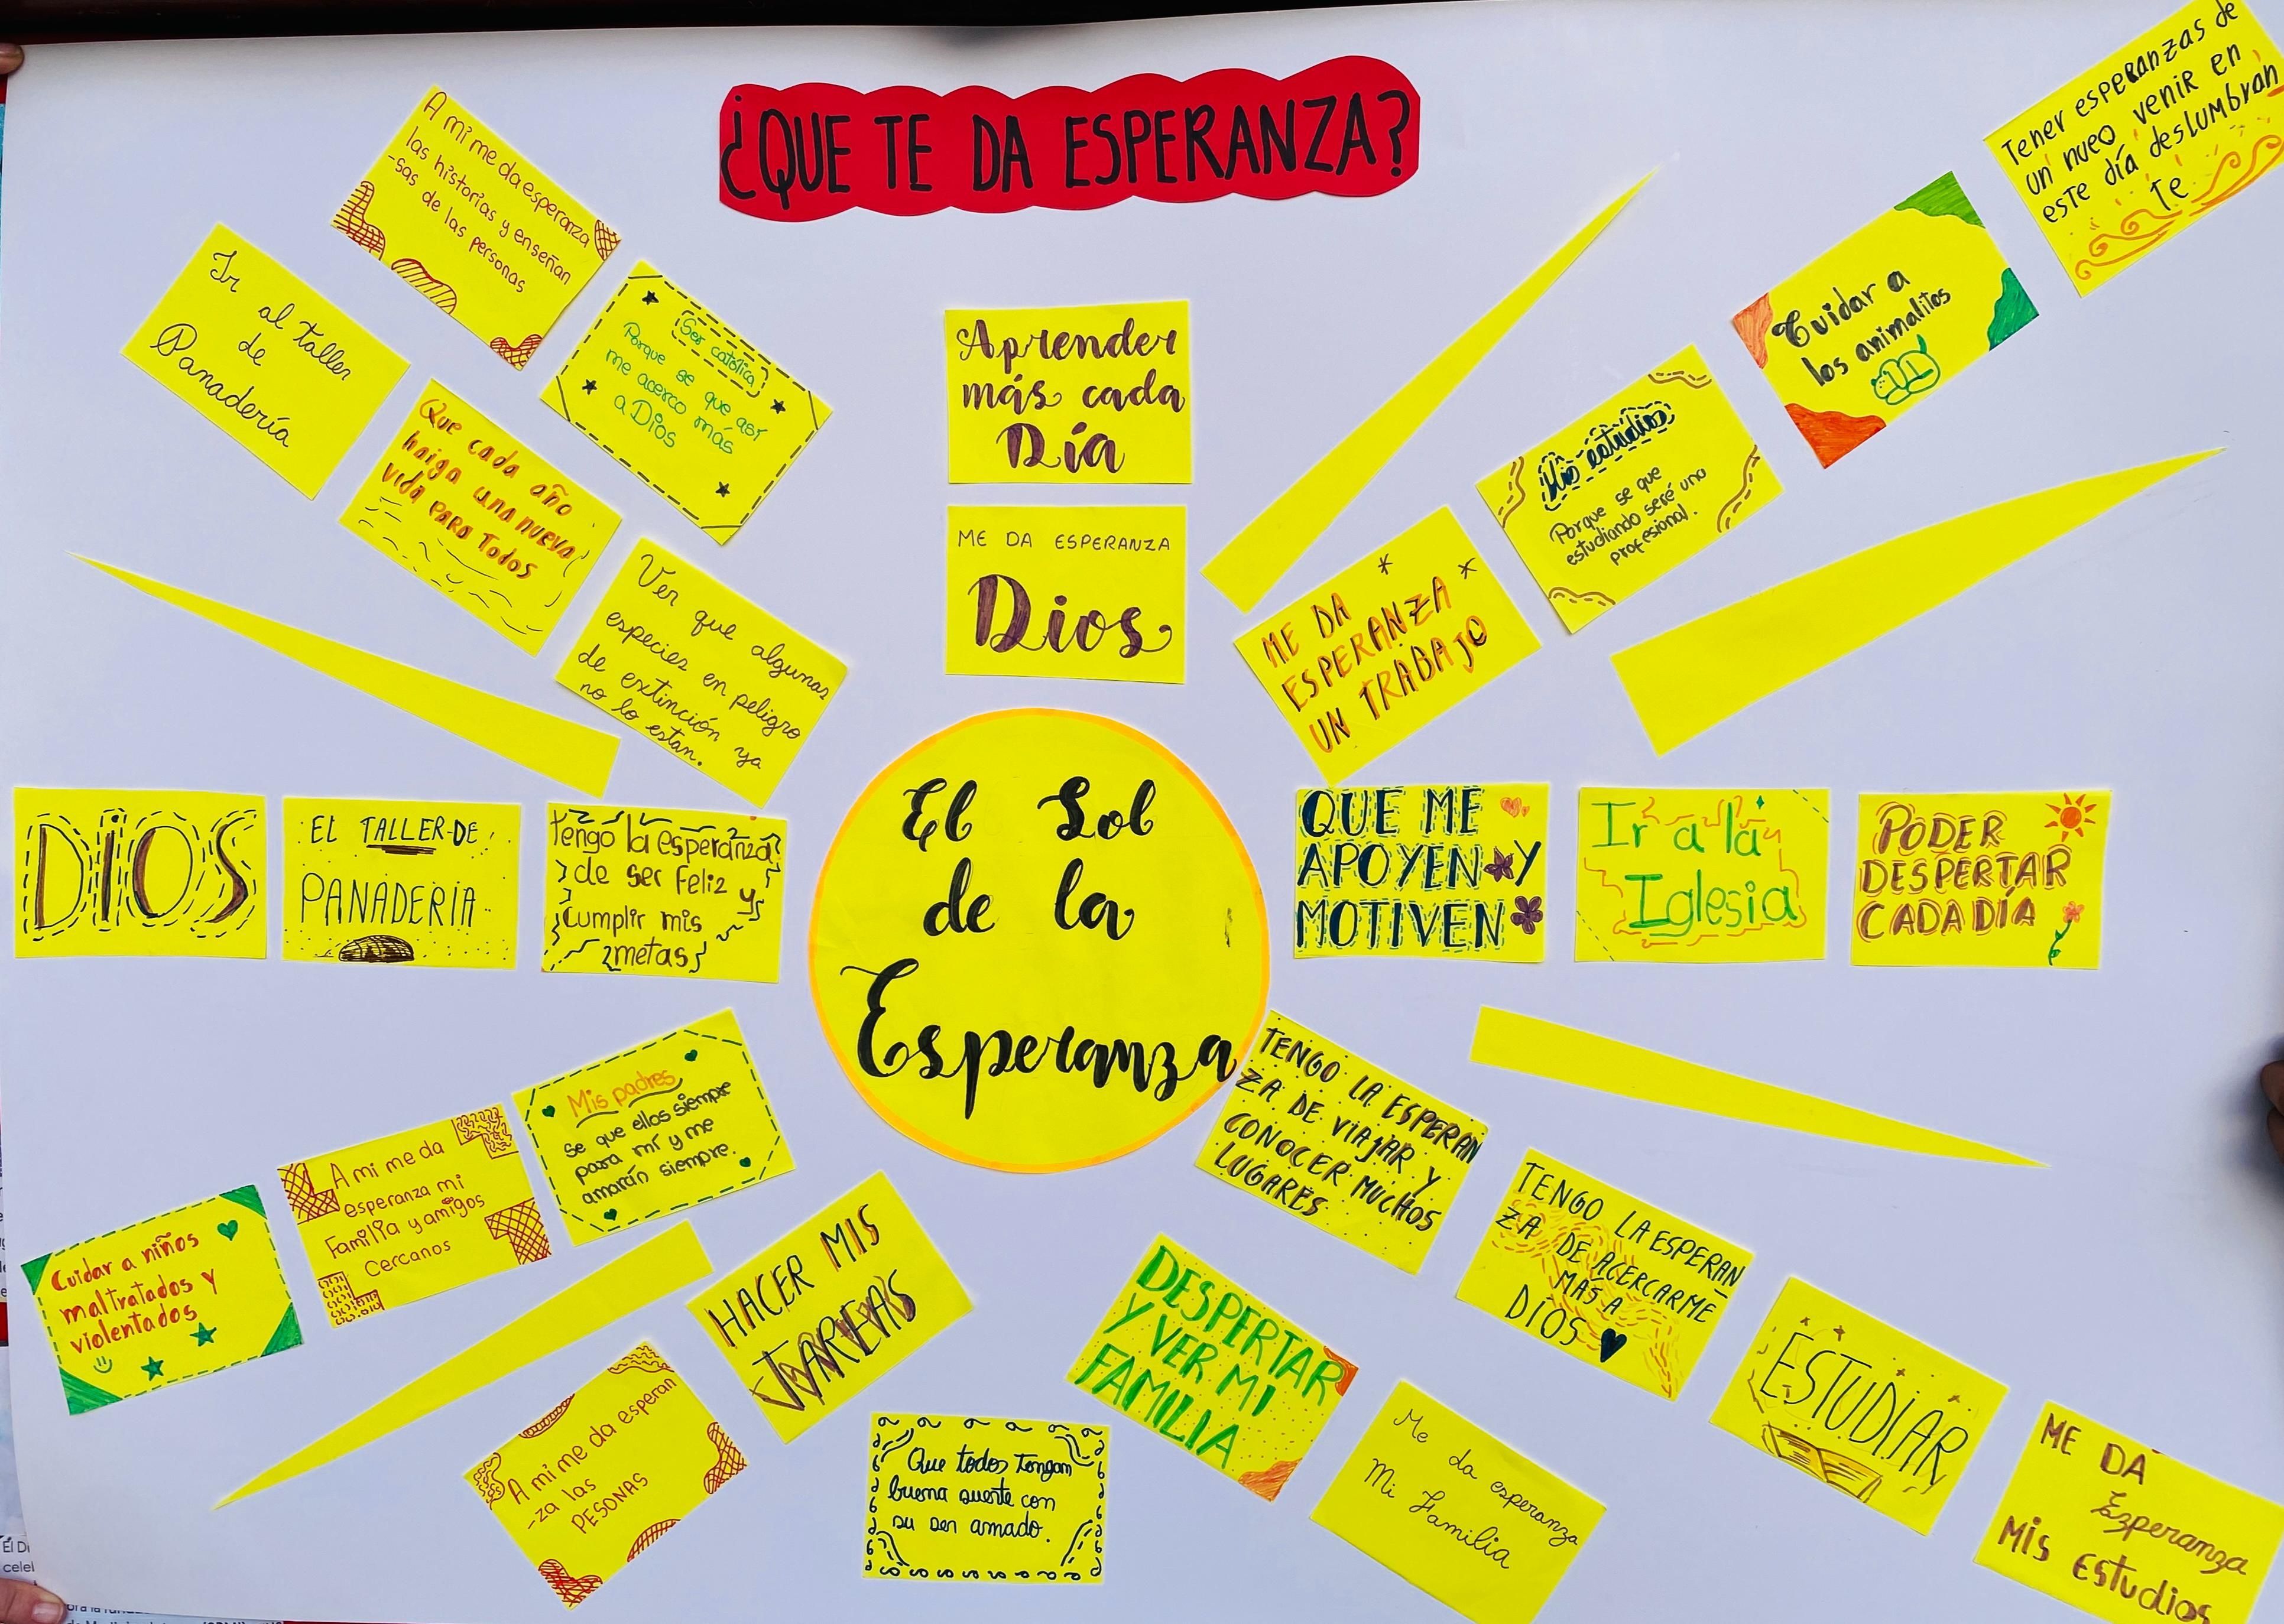 ¿QUE TE DA ESPERANZA?
A mi me da esperanza
las historias y enseñan
-sas de las personas
Ir al taller
de
Panadería
Ser católica
Porque se que así
me acerco más
a Dios
Que cada año
haiga una nueva
vida PARA Todos
Ver que algunas
especies en peligro
de extinción ya
no lo estan.
Aprender
más cada
Día
ME DA ESPERANZA
Dios
Tener esperanzas de
un nueo venir en
este día deslumbran
te
Cuidar a
los animalitos
Mis estudios
Porque se que
estudiando seré una
profesional.
ME DA
ESPERANZA
UN TRABAJO
DIOS
EL TALLER-DE
PANADERIA
tengo la esperanza
de ser feliz y
cumplir mis
metas
El Sol
de la
Esperanza
QUE ME
APOYEN Y
MOTIVEN
Ir a la
Iglesia
PODER
DESPERTAR
CADA DÍA
Mis padres
se que ellos siempre
para mí y me
amarán siempre.
A mi me da
esperanza mi
Familia y amigos
cercanos
Cuidar a niños
maltratados y
violentados
HACER MIS
TAREAS
A mi me da esperan
-za las
PESONAS
Que todos tengan
buena suerte con
su ser amado.
DESPERTAR
Y VER MI
FAMILIA
Me da esperanza
Mi Familia
TENGO LA ESPERAN
ZA DE VIAJAR Y
CONOCER MUCHOS
LUGARES
TENGO LA ESPERAN
ZA DE ACERCARME
MAS A
DIOS
ESTUDIAR
ME DA
Esperanza
MIS EStudios
El Di
celel